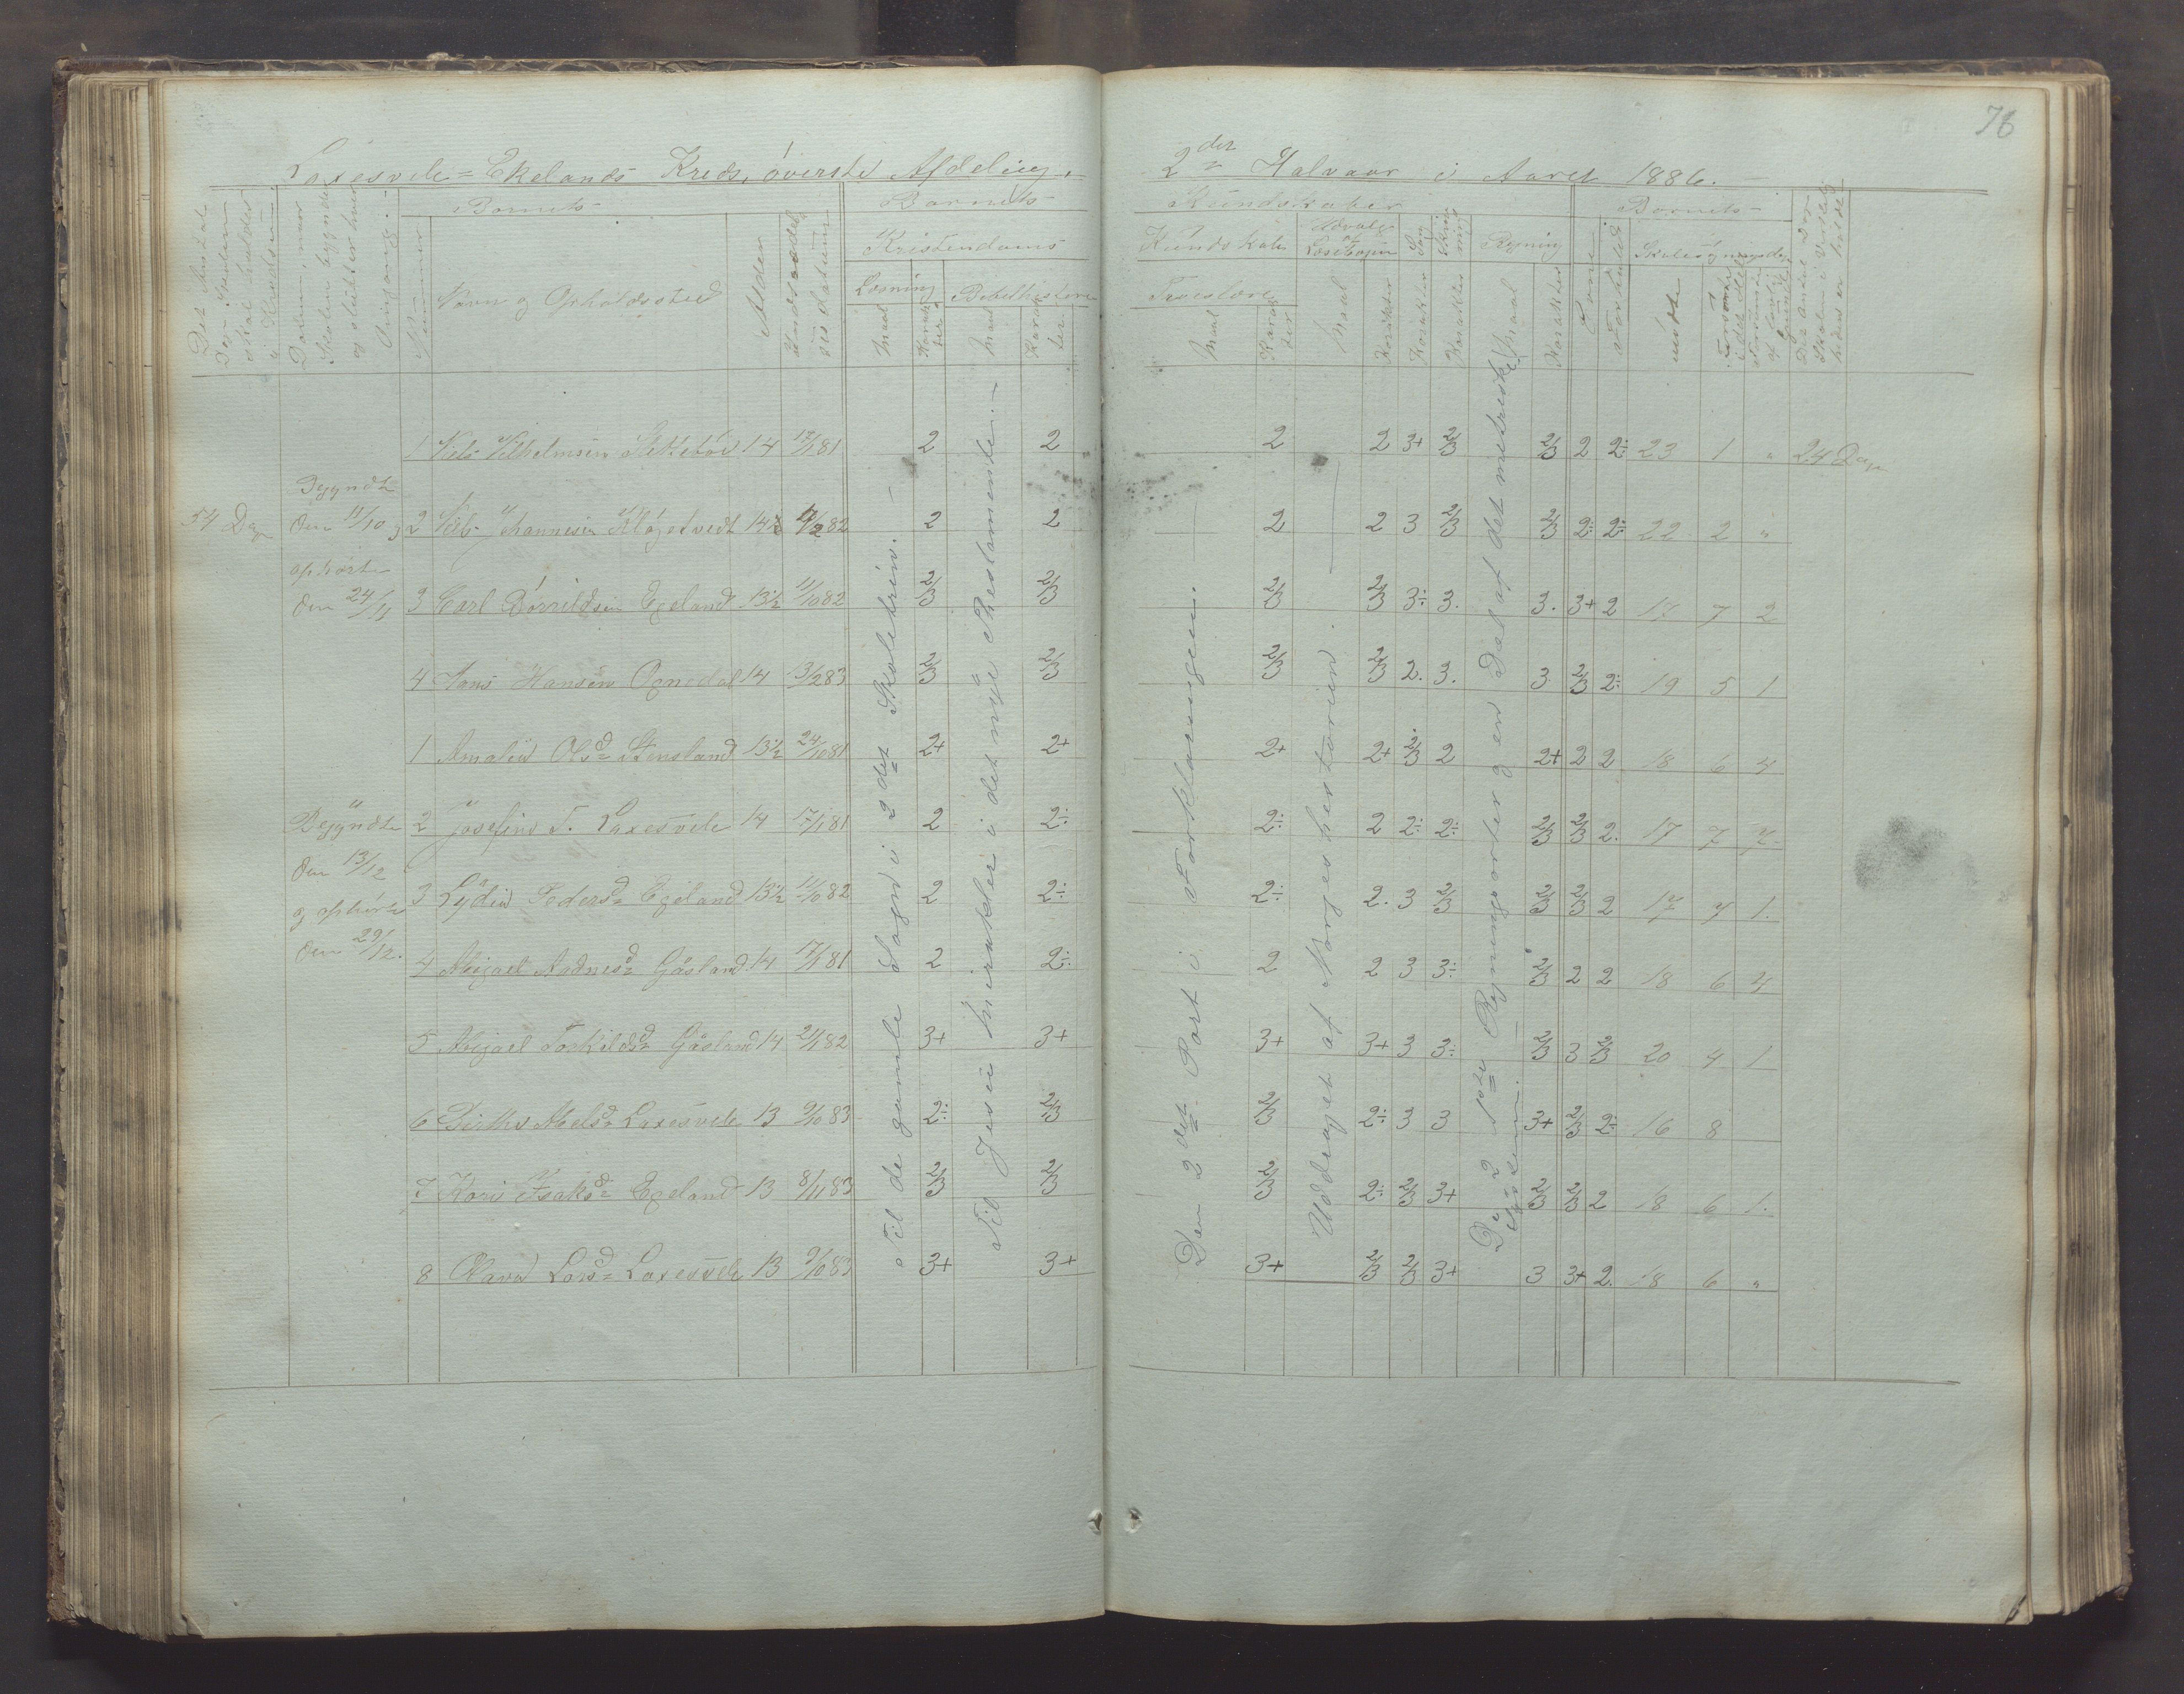 76
Laxesvele = Ekelands Kreds, øverste Afdeling.
2det Halvaar i Aaret 1886.
Det Antal Dage Skolen skal holdes i Kredsen
Datum, naar Skolen begynder og slutter hver Omgang.
Nummer
Barnets
Navn og Opholdssted
Alder
Indtrædelses Datum
Barnets
Kristendoms
Læsning
Maal
Karakter
Bibelhistorie
Maal
Karakter
Kundskaber
Kundskab
Troeslære
Maal
Karakter
Udvalg af Læsebogen
Maal
Karakter
Sang
Karakter
Skrivning
Karakter
Regning
Maal
Karakter
Barnets
Evne
Forhold
Skolesøgningsdage
mødte
forsømte
54 Dage
Begyndte
den 11/10 og
ophørte
den 24/11
Begyndte
den 13/12
og ophørte
den 29/12.
1 Nils Vilhelmsen 14 17/1 81 2 2 2 2 3+ 2/3 2/3 2 2÷ 23 1 " 24 Dage
2 Nils Johannesen 14½ 82 2 2 2 2 3 2/3 2/3 2÷ 2÷ 22 2 "
3 Carl Egeland 13½ 11/10 82 2/3 2/3 2/3 2/3 3÷ 3. 3. 3+ 2 17 7 2
4 Hans Hansen Ognedal 14 13/2 83 2/3 2/3 2/3 2/3 2. 3. 3. 2/3 2÷ 19 5 1
1 Amalie Olsd. Stensland 13½ 24/10 81 2+ 2+ 2+ 2+ 2/3 2 2+ 2 2 18 6 4
2 Josefine T. Laxesvele 14 17/1 81 2 2÷ 2÷ 2 2÷ 2÷ 2/3 2/3 2. 17 7 7.
3 Lydia Pedersd. Egeland 13½ 11/10 82 2 2÷ 2÷ 2. 3 2/3 2/3 2/3 2 17 7 1.
4 Abigael Aadnesd. Gåsland 14 17/1 81 2 2÷ 2 2 3 3÷ 2/3 2 2 18 6 4
5 Abigael Torkildsd. Gåsland 14 24/1 82 3+ 3+ 3+ 3+ 3 3÷ 2/3 3 2/3 20 4 1
6 Birthe Abelsd. Laxesvele 13 9/10 83 2÷ 2/3 2/3 2÷ 3 3 3+ 2/3 2÷ 16 8
7 Kari Isaksd. Egeland 13 8/11 83 2/3 2/3 2/3 2÷ 2/3 3+ 2/3 2/3 2 18 6 1.
8 Olava Larsd. Laxesvele 13 9/10 83 3+ 3+ 3+ 2/3 2/3 3+ 3 3+ 2. 18 6 "
Til de gamle Sagn i 2det Skoletrin.
Til Jesu Mirakler i det nye Thestamente.
Den 2det Part i Forklaringen.
Uddraget af Norges historien.
De 2 1ste Regningsarter og en Del af det metriske System.